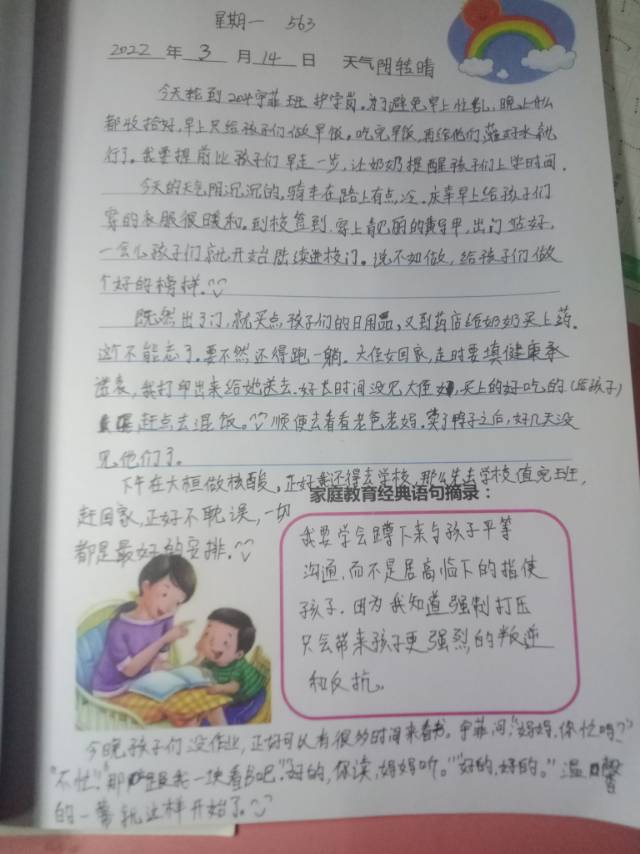 星期一 563
2022 年 3 月 14 日 天气阴转晴
今天轮到204宇菲班护学岗。为了避免早上忙乱,晚上什么
都收拾好,早上只给孩子们做早饭。吃完早饭,再给他们灌好水就
行了。我要提前比孩子们早走一步,让奶奶提醒孩子们上学时间。
今天的天气阴沉沉的,骑车在路上有点冷。庆幸早上给孩子们
穿的衣服很暖和。到校签到,穿上靓丽的黄马甲,出门站好,
一会儿孩子们就开始陆续进校门。说不如做,给孩子们做
个好的榜样。
既然出了门,就买点孩子们的日用品,又到药店给奶奶买上药。
这不能忘了。要不然还得跑一躺。大侄女回家,走时要填健康承
诺表,我打印出来给她送去。好长时间没见大侄女,买上的好吃的(给孩子)
赶点去混饭。顺便去看看老爸老妈。卖了鸭子之后,好几天没
见他们了。
下午在大桓做核酸,正好我还得去学校,那么先去学校值完班,
赶回家,正好不耽误,一切
都是最好的安排。
家庭教育经典语句摘录:
我要学会蹲下来与孩子平等
沟通,而不是居高临下的指使
孩子。因为我知道强制打压
只会带来孩子更强烈的叛逆
和反抗。
今晚孩子们没作业,正好可以有很多时间来看书。宇菲问:“妈妈,你忙吗?”
“不忙!”“那跟我一块看书吧。”“好的,你读,妈妈听。”“好的,好的。”温馨
的一幕就这样开始了。